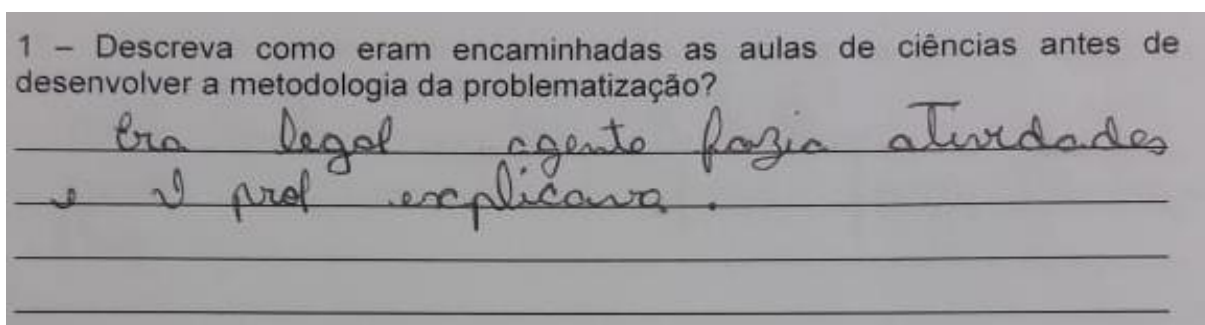 1 – Descreva como eram encaminhadas as aulas de ciências antes de
desenvolver a metodologia da problematização?
Era legal agente fazia atividades
e o prof explicava.